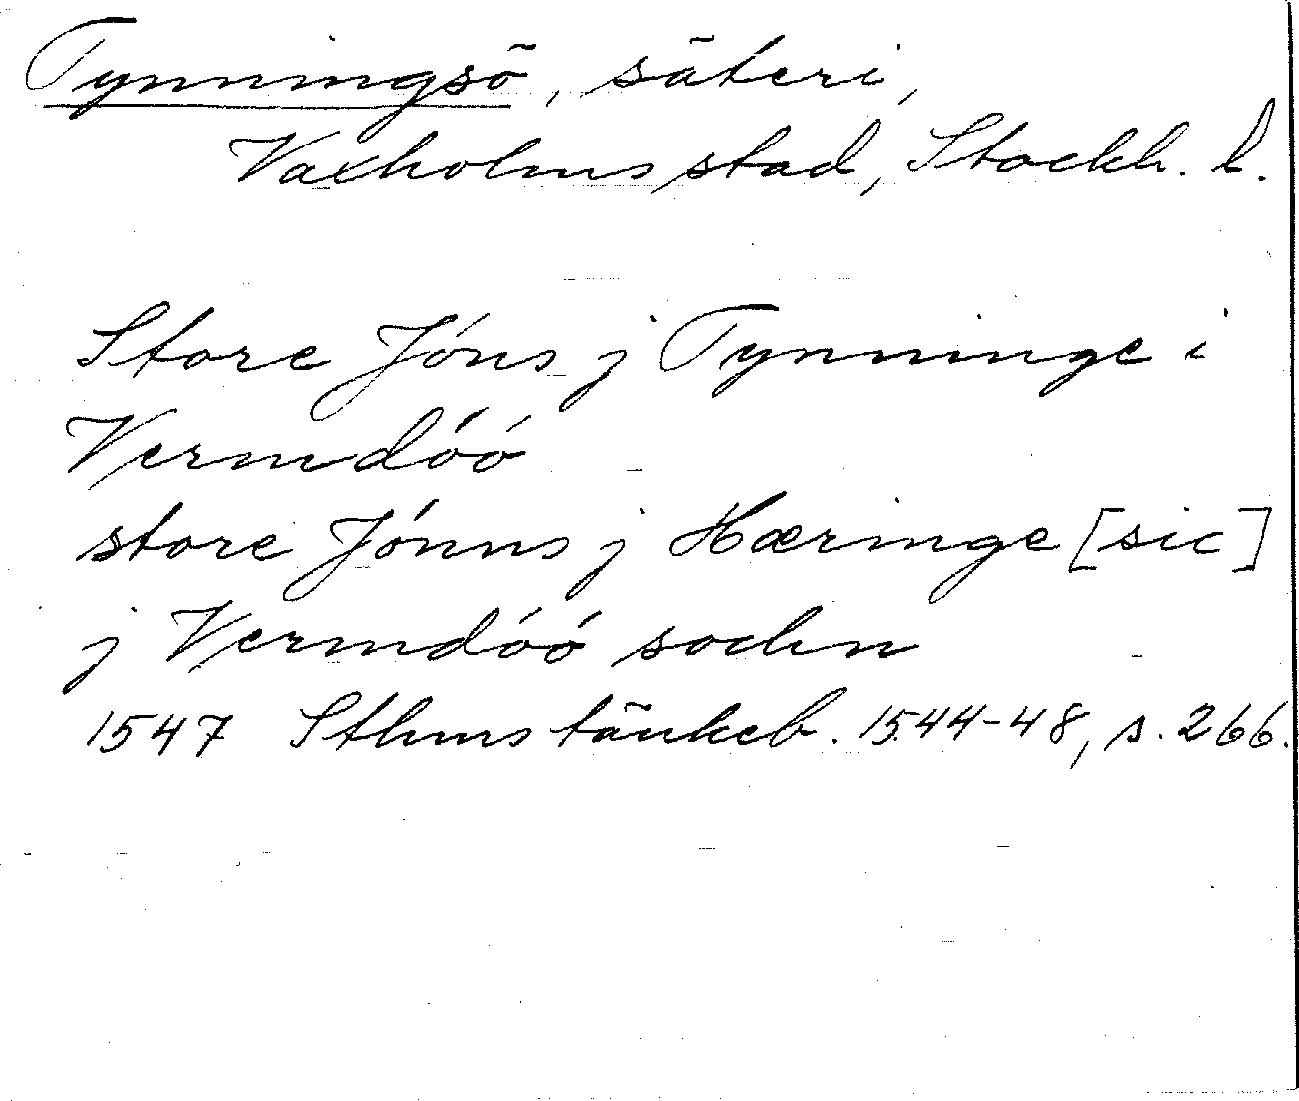 Tynningsö, säteri,
Vaxholms stad, Stockh. l.
Store Jóns j Tynninge i
Vermdóó
store Jónns j Hæringe [sic]
j Vermdóó sochn
1547 Sthms tänkeb. 1544-48, s. 266.